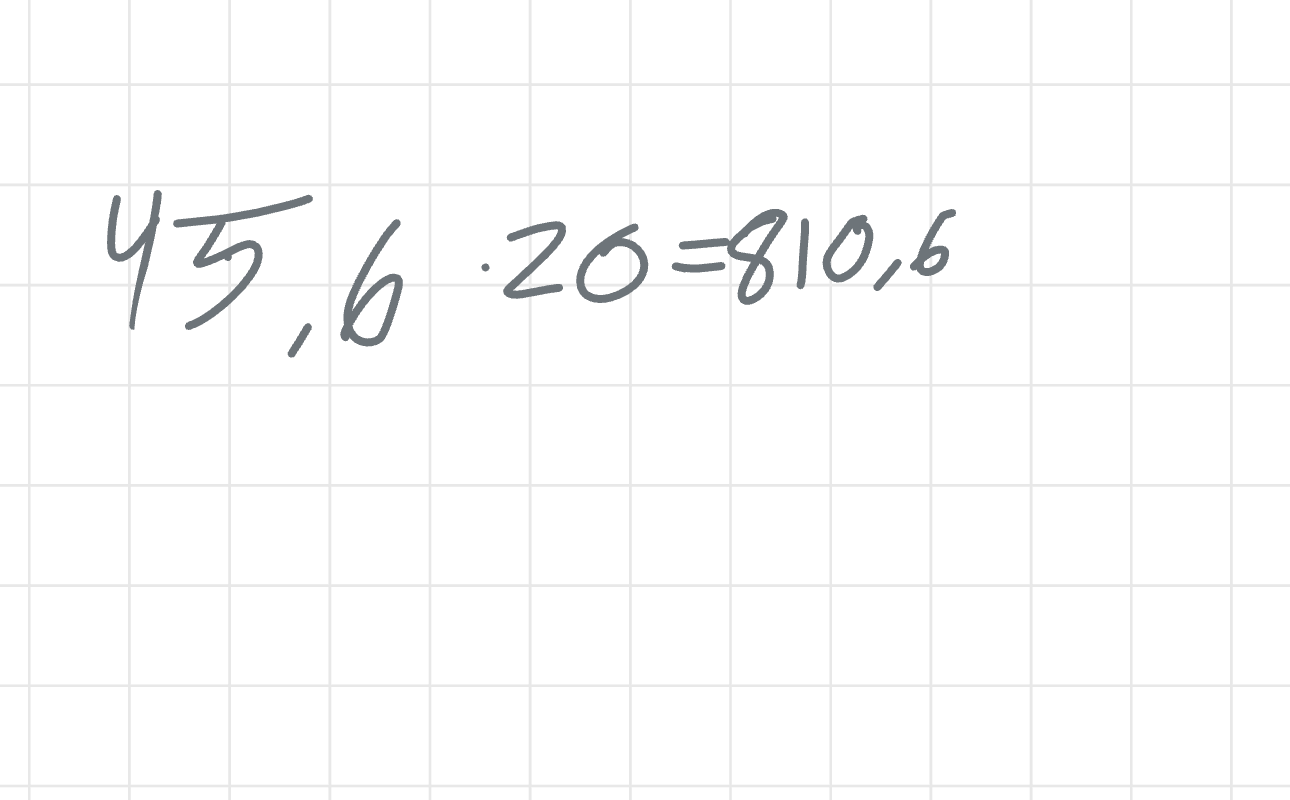 45,6 · 20 = 810,6